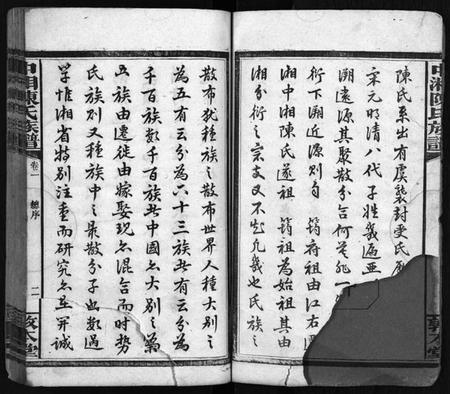 陳氏系出有虞襲封受氏
宋元明清八代子姓幾遍亜
溯遠源其聚散分合何莫非
衍下溯近源則自 筠府祖由江右
湘中湘陳氏遂祖 筠祖為始祖其由
湘分衍之宗支又不知凡幾也氏族之
散布猶種族之散布世界人種大別之
為五有云分為六十三族者有云分為
千百族數千百族者中國亦大別之為
五族由遷徙由嫁娶現亦混合而時勢
氏族則又種族中之最散分子也歐過
學惟湘省特別注重而研究亦至開誠
中湘陳氏族譜
卷一
總序
二
敦本堂
中湘陳氏族譜
敦本堂